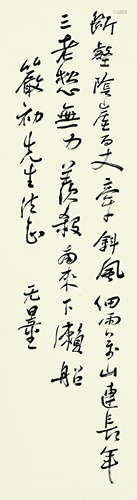 断壑陰崖百丈牽斜風細雨萬山連長年
三老愁無力羨殺南來下瀨船
嚴初先生法正
无量